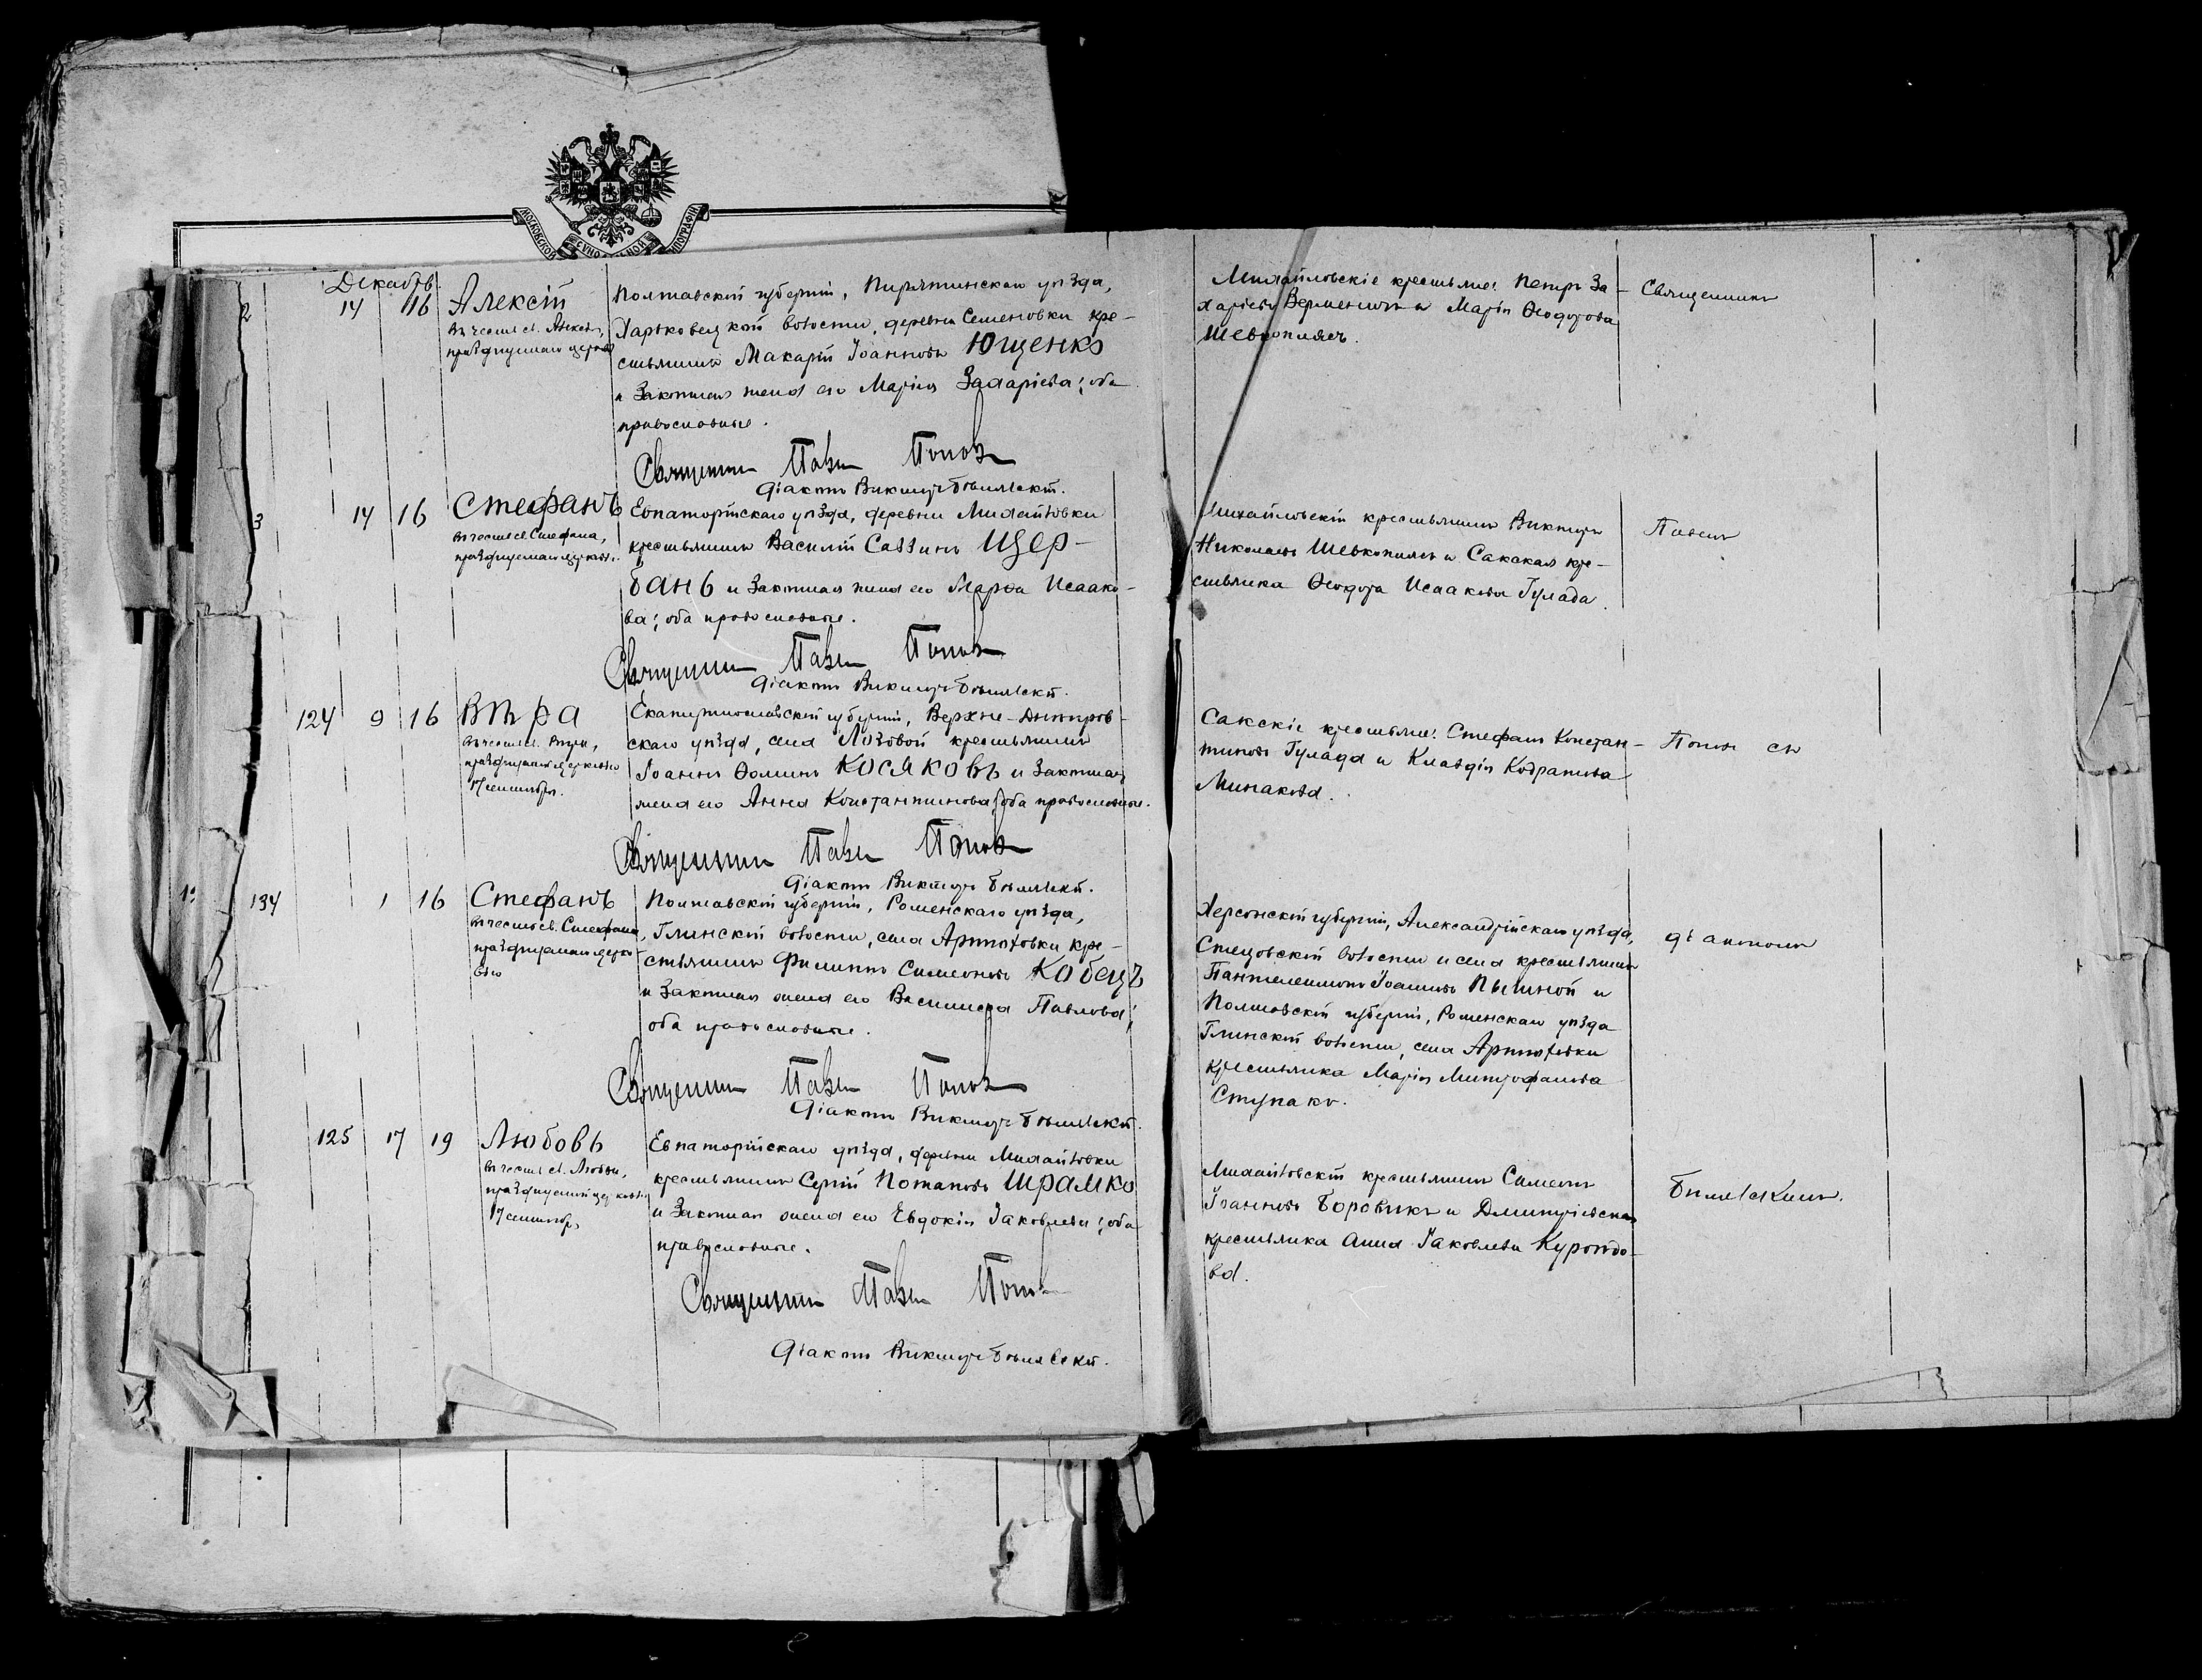 МОСКОВСКОЙ СѴНОДАЛЬНОЙ ТИПОГРАФІИ
Декабрь
2 14 16 Алексій
въ честь св. Алексія,
празднуемаго церковію
Полтавской губерніи, Пирятинскаго уѣзда,
Харьковецкой волости, деревни Семеновки кре-
стьянинъ Макарій Іоанновъ Ющенко
и законная жена его Марія Захаріева; оба
православные.
Священникъ Павелъ Поповъ
Діаконъ Викторъ Бѣлявскій.
Михайловскіе крестьяне: Петръ За-
харіевъ Верменичъ и Марія Ѳеодорова
Шевкоплясъ.
Священникъ
3 14 16 Стефанъ
въ честь св. Стефана,
празднуемаго церковію.
Евпаторійскаго уѣзда, деревни Михайловки
крестьянинъ Василій Саввинъ Щер-
бань и законная жена его Марѳа Исаако-
ва; оба православные.
Священникъ Павелъ Поповъ
Діаконъ Викторъ Бѣлявскій.
Михайловскій крестьянинъ Викторъ
Николаевъ Шевкоплясъ и Сакская кре-
стьянка Ѳеодора Исаакова Гулада.
Павелъ
124 9 16 Вѣра
въ честь св. Вѣры,
празднуемой церковію
17 сентября.
Екатеринославской губерніи, Верхне-Днѣпров-
скаго уѣзда, села Лозовой крестьянинъ
Іоаннъ Ѳоминъ Косяковъ и законная
жена его Анна Константинова; оба православные.
Священникъ Павелъ Поповъ
Діаконъ Викторъ Бѣлявскій.
Сакскіе крестьяне: Стефанъ Констан-
тиновъ Гулада и Клавдія Кодратова
Минакова.
Поповъ съ
134 1 16 Стефанъ
въ честь св. Стефана,
празднуемаго церко-
вію
Полтавской губерніи, Роменскаго уѣзда,
Глинской волости, села Артюховки кре-
стьянинъ Филиппъ Симеоновъ Кобецъ
и законная жена его Василиса Павлова;
оба православные.
Священникъ Павелъ Поповъ
Діаконъ Викторъ Бѣлявскій.
Херсонской губерніи, Александрійскаго уѣзда,
Стецовской волости и села крестьянинъ
Пантелеимонъ Іоанновъ Пышной и
Полтавской губерніи, Роменскаго уѣзда
Глинской волости, села Артюховки
крестьянка Марія Митрофанова
Ступако.
діакономъ
125 17 19 Любовь
въ честь св. Любви,
празднуемой церковію
17 сентября
Евпаторійскаго уѣзда, деревни Михайловки
крестьянинъ Сергій Потаповъ Шрамко
и законная жена его Евдокія Іаковлева; оба
православные.
Священникъ Павелъ Поповъ
Діаконъ Викторъ Бѣлявскій.
Михайловскій крестьянинъ Симеонъ
Іоанновъ Боровикъ и Дмитріевская
крестьянка Анна Іаковлева
Бѣлявскимъ.